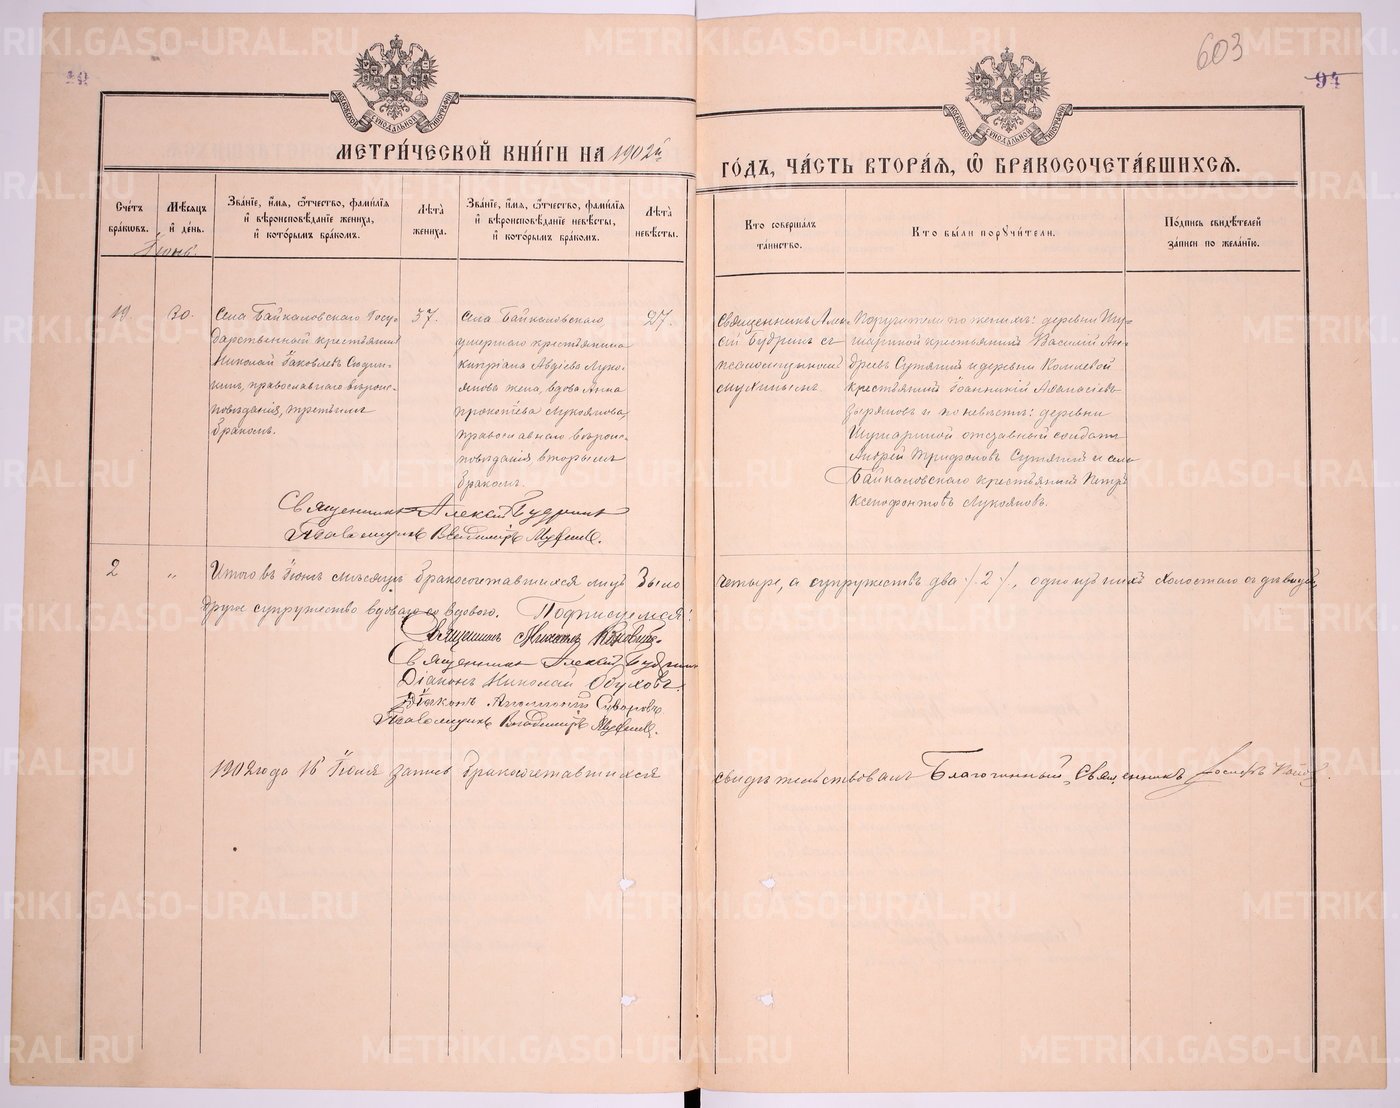 603
94
МЕТРИЧЕСКОЙ КНИГИ НА 1902й
ГОДЪ, ЧАСТЬ ВТОРАЯ, Ѿ БРАКОСОЧЕТАВШИХСЯ.
Счетъ браковъ.
Мѣсяцъ и день.
Званіе, имя, отчество, фамилія и вѣроисповѣданіе жениха, и которымъ бракомъ.
Лѣта жениха.
Званіе, имя, отчество, фамилія и вѣроисповѣданіе невѣсты, и которымъ бракомъ.
Лѣта невѣсты.
Кто совершалъ таинство.
Кто были поручители.
Подпись свидѣтелей записи по желанію.
19.
30.
Села Байкаловскаго Госу-
дарственный крестьянинъ
Николай Іаковлевъ
православнаго вѣроис-
повѣданія, третьимъ
бракомъ.
37.
Села Байкаловскаго
умершаго крестьянина
Кипріана Авдіева Луко-
янова жена, вдова Анна
Прокопіева Лукоянова,
православнаго вѣроис-
повѣданія, вторымъ
бракомъ.
27.
Священникъ Алек-
сій Будринъ съ
псаломщикомъ
Поручители по женихѣ: деревни Шу-
шариной крестьянинъ Василій Ан-
дреевъ Сутягинъ и деревни
крестьянинъ Іоанникій Аѳанасіевъ
Зыряновъ и по невѣстѣ: деревни
отставный солдатъ
Андрей Трифоновъ Сутягинъ и села
Байкаловскаго крестьянинъ Петръ
Ксенофонтовъ Лукояновъ.
Священникъ Алексій Будринъ
Псаломщикъ Владиміръ
2
"
Итого въ Іюнѣ мѣсяцѣ бракосочетавшихся лицъ было
четыре, а супружествъ два /2/, одно изъ нихъ холостаго съ дѣвицей,
другое супружество вдоваго со вдовою. Подписуемся:
Священникъ
Священникъ Алексій Будринъ
Діаконъ Николай Обуховъ.
Діаконъ Суворовъ
Псаломщикъ Владиміръ
1902 года 16 Іюня запись бракосочетавшихся
свидѣтельствовалъ Благочинный, Священникъ